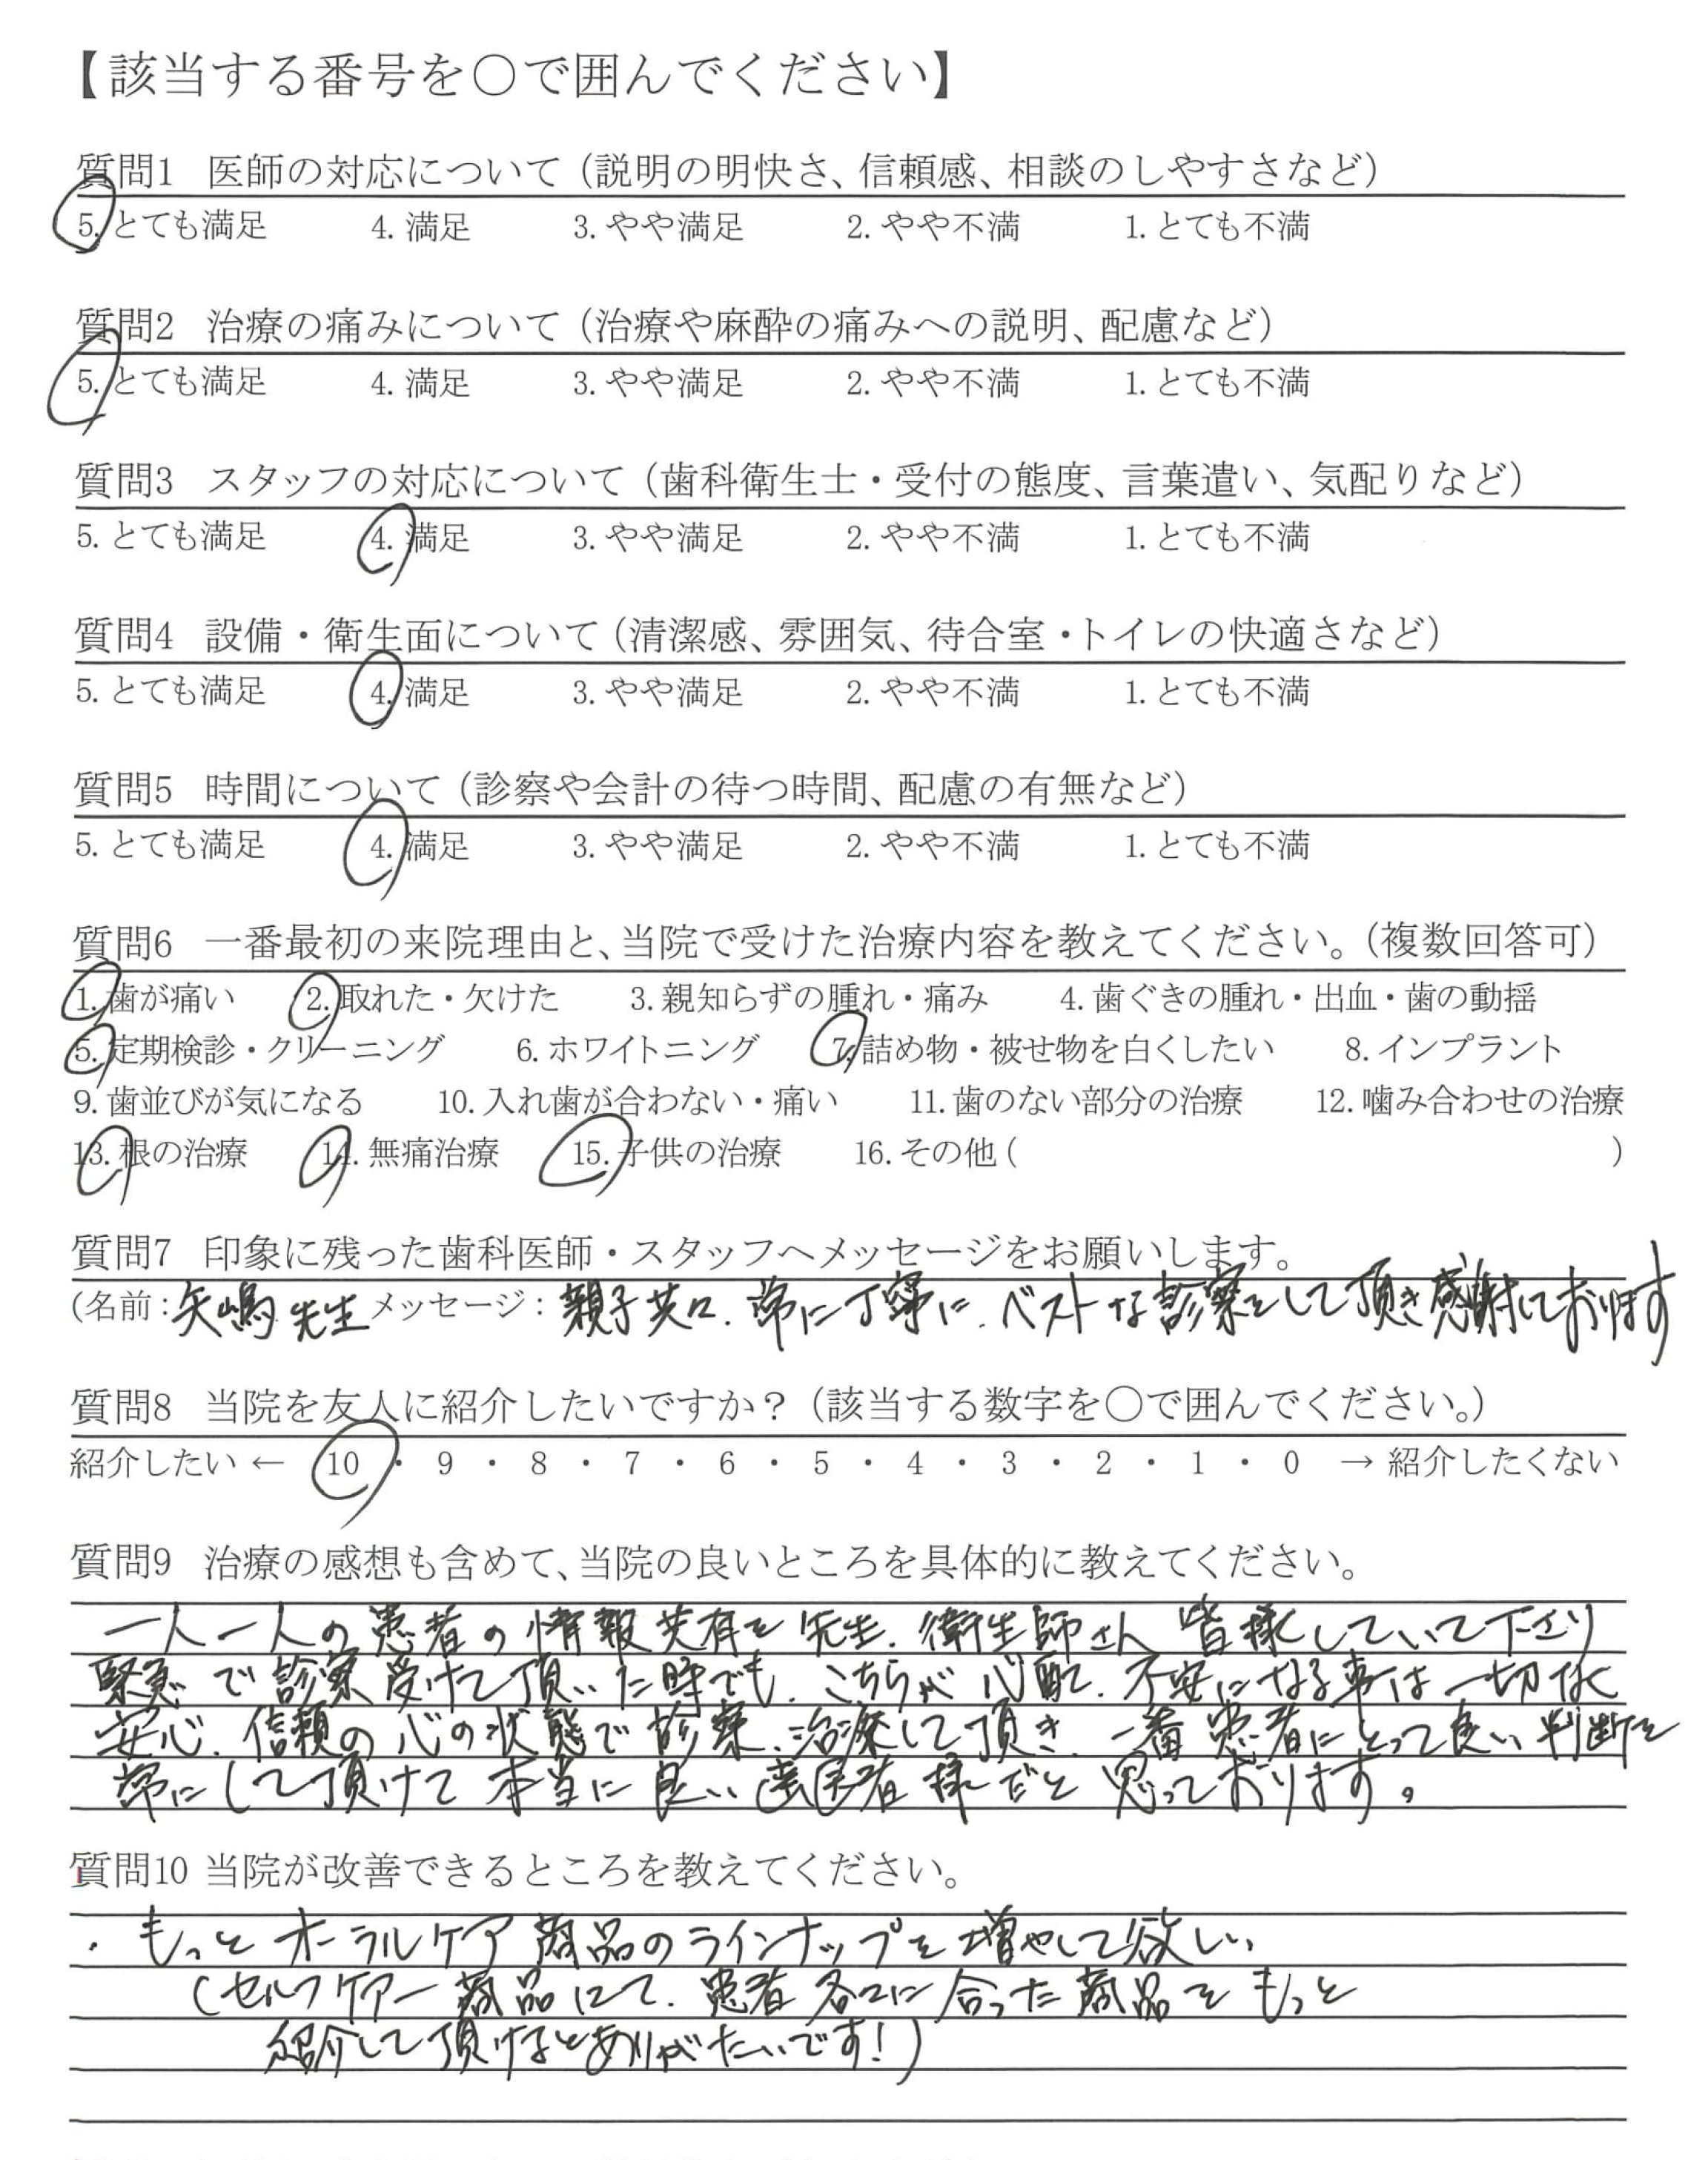 【該当する番号を○で囲んでください】
質問1 医師の対応について（説明の明快さ、信頼感、相談のしやすさなど）
5. とても満足 4. 満足 3. やや満足 2. やや不満 1. とても不満
質問2 治療の痛みについて（治療や麻酔の痛みへの説明、配慮など）
5. とても満足 4. 満足 3. やや満足 2. やや不満 1. とても不満
質問3 スタッフの対応について（歯科衛生士・受付の態度、言葉遣い、気配りなど）
5. とても満足 4. 満足 3. やや満足 2. やや不満 1. とても不満
質問4 設備・衛生面について（清潔感、雰囲気、待合室・トイレの快適さなど）
5. とても満足 4. 満足 3. やや満足 2. やや不満 1. とても不満
質問5 時間について（診察や会計の待つ時間、配慮の有無など）
5. とても満足 4. 満足 3. やや満足 2. やや不満 1. とても不満
質問6 一番最初の来院理由と、当院で受けた治療内容を教えてください。（複数回答可）
1. 歯が痛い 2. 取れた・欠けた 3. 親知らずの腫れ・痛み 4. 歯ぐきの腫れ・出血・歯の動揺
5. 定期検診・クリーニング 6. ホワイトニング 7. 詰め物・被せ物を白くしたい 8. インプラント
9. 歯並びが気になる 10. 入れ歯が合わない・痛い 11. 歯のない部分の治療 12. 噛み合わせの治療
13. 根の治療 14. 無痛治療 15. 子供の治療 16. その他 ( )
質問7 印象に残った歯科医師・スタッフへメッセージをお願いします。
(名前：矢嶋先生 メッセージ：親子共々、常に丁寧に、ベストな診察をして頂き感謝しております
質問8 当院を友人に紹介したいですか？（該当する数字を○で囲んでください。）
紹介したい ← 10 ・ 9 ・ 8 ・ 7 ・ 6 ・ 5 ・ 4 ・ 3 ・ 2 ・ 1 ・ 0 → 紹介したくない
質問9 治療の感想も含めて、当院の良いところを具体的に教えてください。
一人一人の患者の情報共有を先生、衛生師さん 皆様していて下さり
緊急で診察受けて頂いた時でも、こちらが心配、不安になる事は一切なく
安心、信頼の心の状態で診察、治療して頂き、一番患者にとって良い判断を
常にして頂けて本当に良い歯医者様だと思っております。
質問10 当院が改善できるところを教えてください。
・もっとオーラルケア商品のラインナップを増やして欲しい
（セルフケアー商品にて、患者各々に合った商品をもっと
紹介して頂けるとありがたいです！）